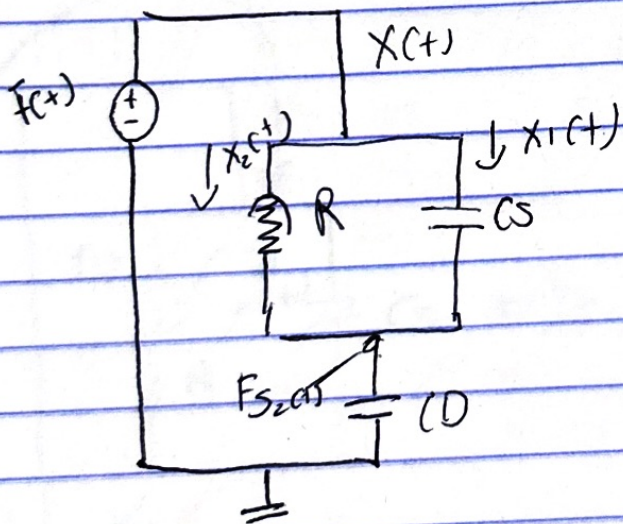 X(t)
F(t)
+
-
X₂(t)
X₁(t)
R
CS
FS₂(t)
CD